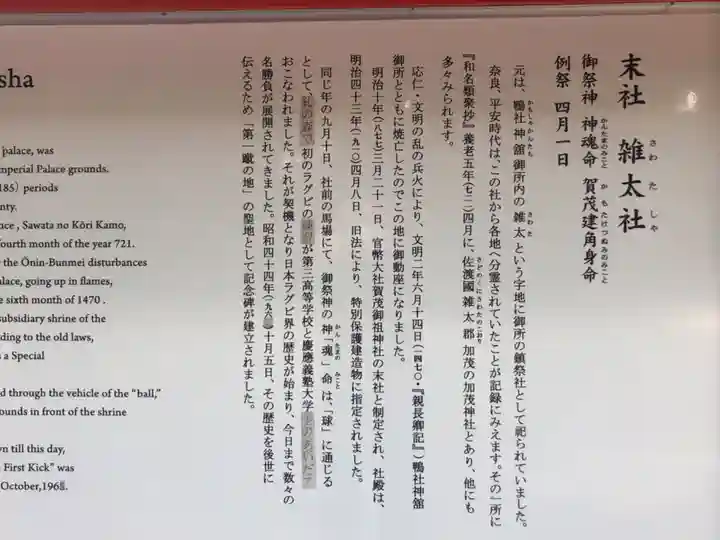 末社 雑太社
さわたしゃ
御祭神 神魂命 賀茂建角身命
かんたまのみこと かもたけつぬみのみこと
例祭 四月一日
元は、鴨社神館御所内の雑太という字地に御所の鎮祭社として祀られていました。
かもしゃかんたち さわた
奈良、平安時代は、この社から各地へ分霊されていたことが記録にみえます。その一所に
『和名類聚抄』養老五年(七二一)四月に、佐渡國雑太郡加茂の加茂神社とあり、他にも
さどのくにさわたのこおり
多々みられます。
応仁・文明の乱の兵火により、文明二年六月十四日(一四七〇・『親長卿記』)鴨社神館
御所とともに焼亡したのでこの地に御動座になりました。
明治十年(一八七七)三月二十一日、官幣大社賀茂御祖神社の末社と制定され、社殿は、
明治四十三年(一九一〇)四月八日、旧法により、特別保護建造物に指定されました。
同じ年の九月十日、社前の馬場にて、御祭神の神「魂」命は、「球」に通じる
かんたまのみこと
として、糺の森で初のラグビーの練習が第三高等学校と慶應義塾大学とのあいだで
おこなわれました。それが契機となり日本ラグビ界の歴史が始まり、今日まで数々の
名勝負が展開されてきました。昭和四十四年(一九六〇)十月五日、その歴史を後世に
伝えるため「第一蹴の地」の聖地として記念碑が建立されました。
sha
palace, was
mperial Palace grounds.
185) periods
nty.
nce, Sawata no Kōri Kamo,
fourth month of the year 721.
the Ōnin-Bunmei disturbances
alace, going up in flames,
e sixth month of 1470.
subsidiary shrine of the
ding to the old laws,
s a Special
d through the vehicle of the "ball,"
ounds in front of the shrine
n till this day,
First Kick" was
October,196